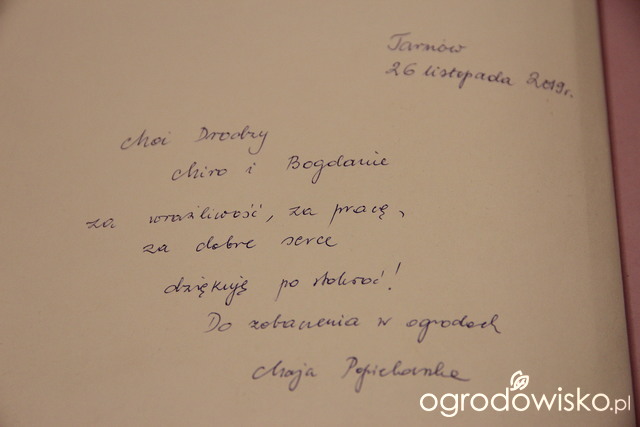 Tarnów
26 listopada 2019r.
Moi Drodzy
Miro i Bogdanie
za wrażliwość, za pracę,
za dobre serce
dziękuję po stokroć!
Do zobaczenia w ogrodach
Maja Popielarska
ogrodowisko.pl